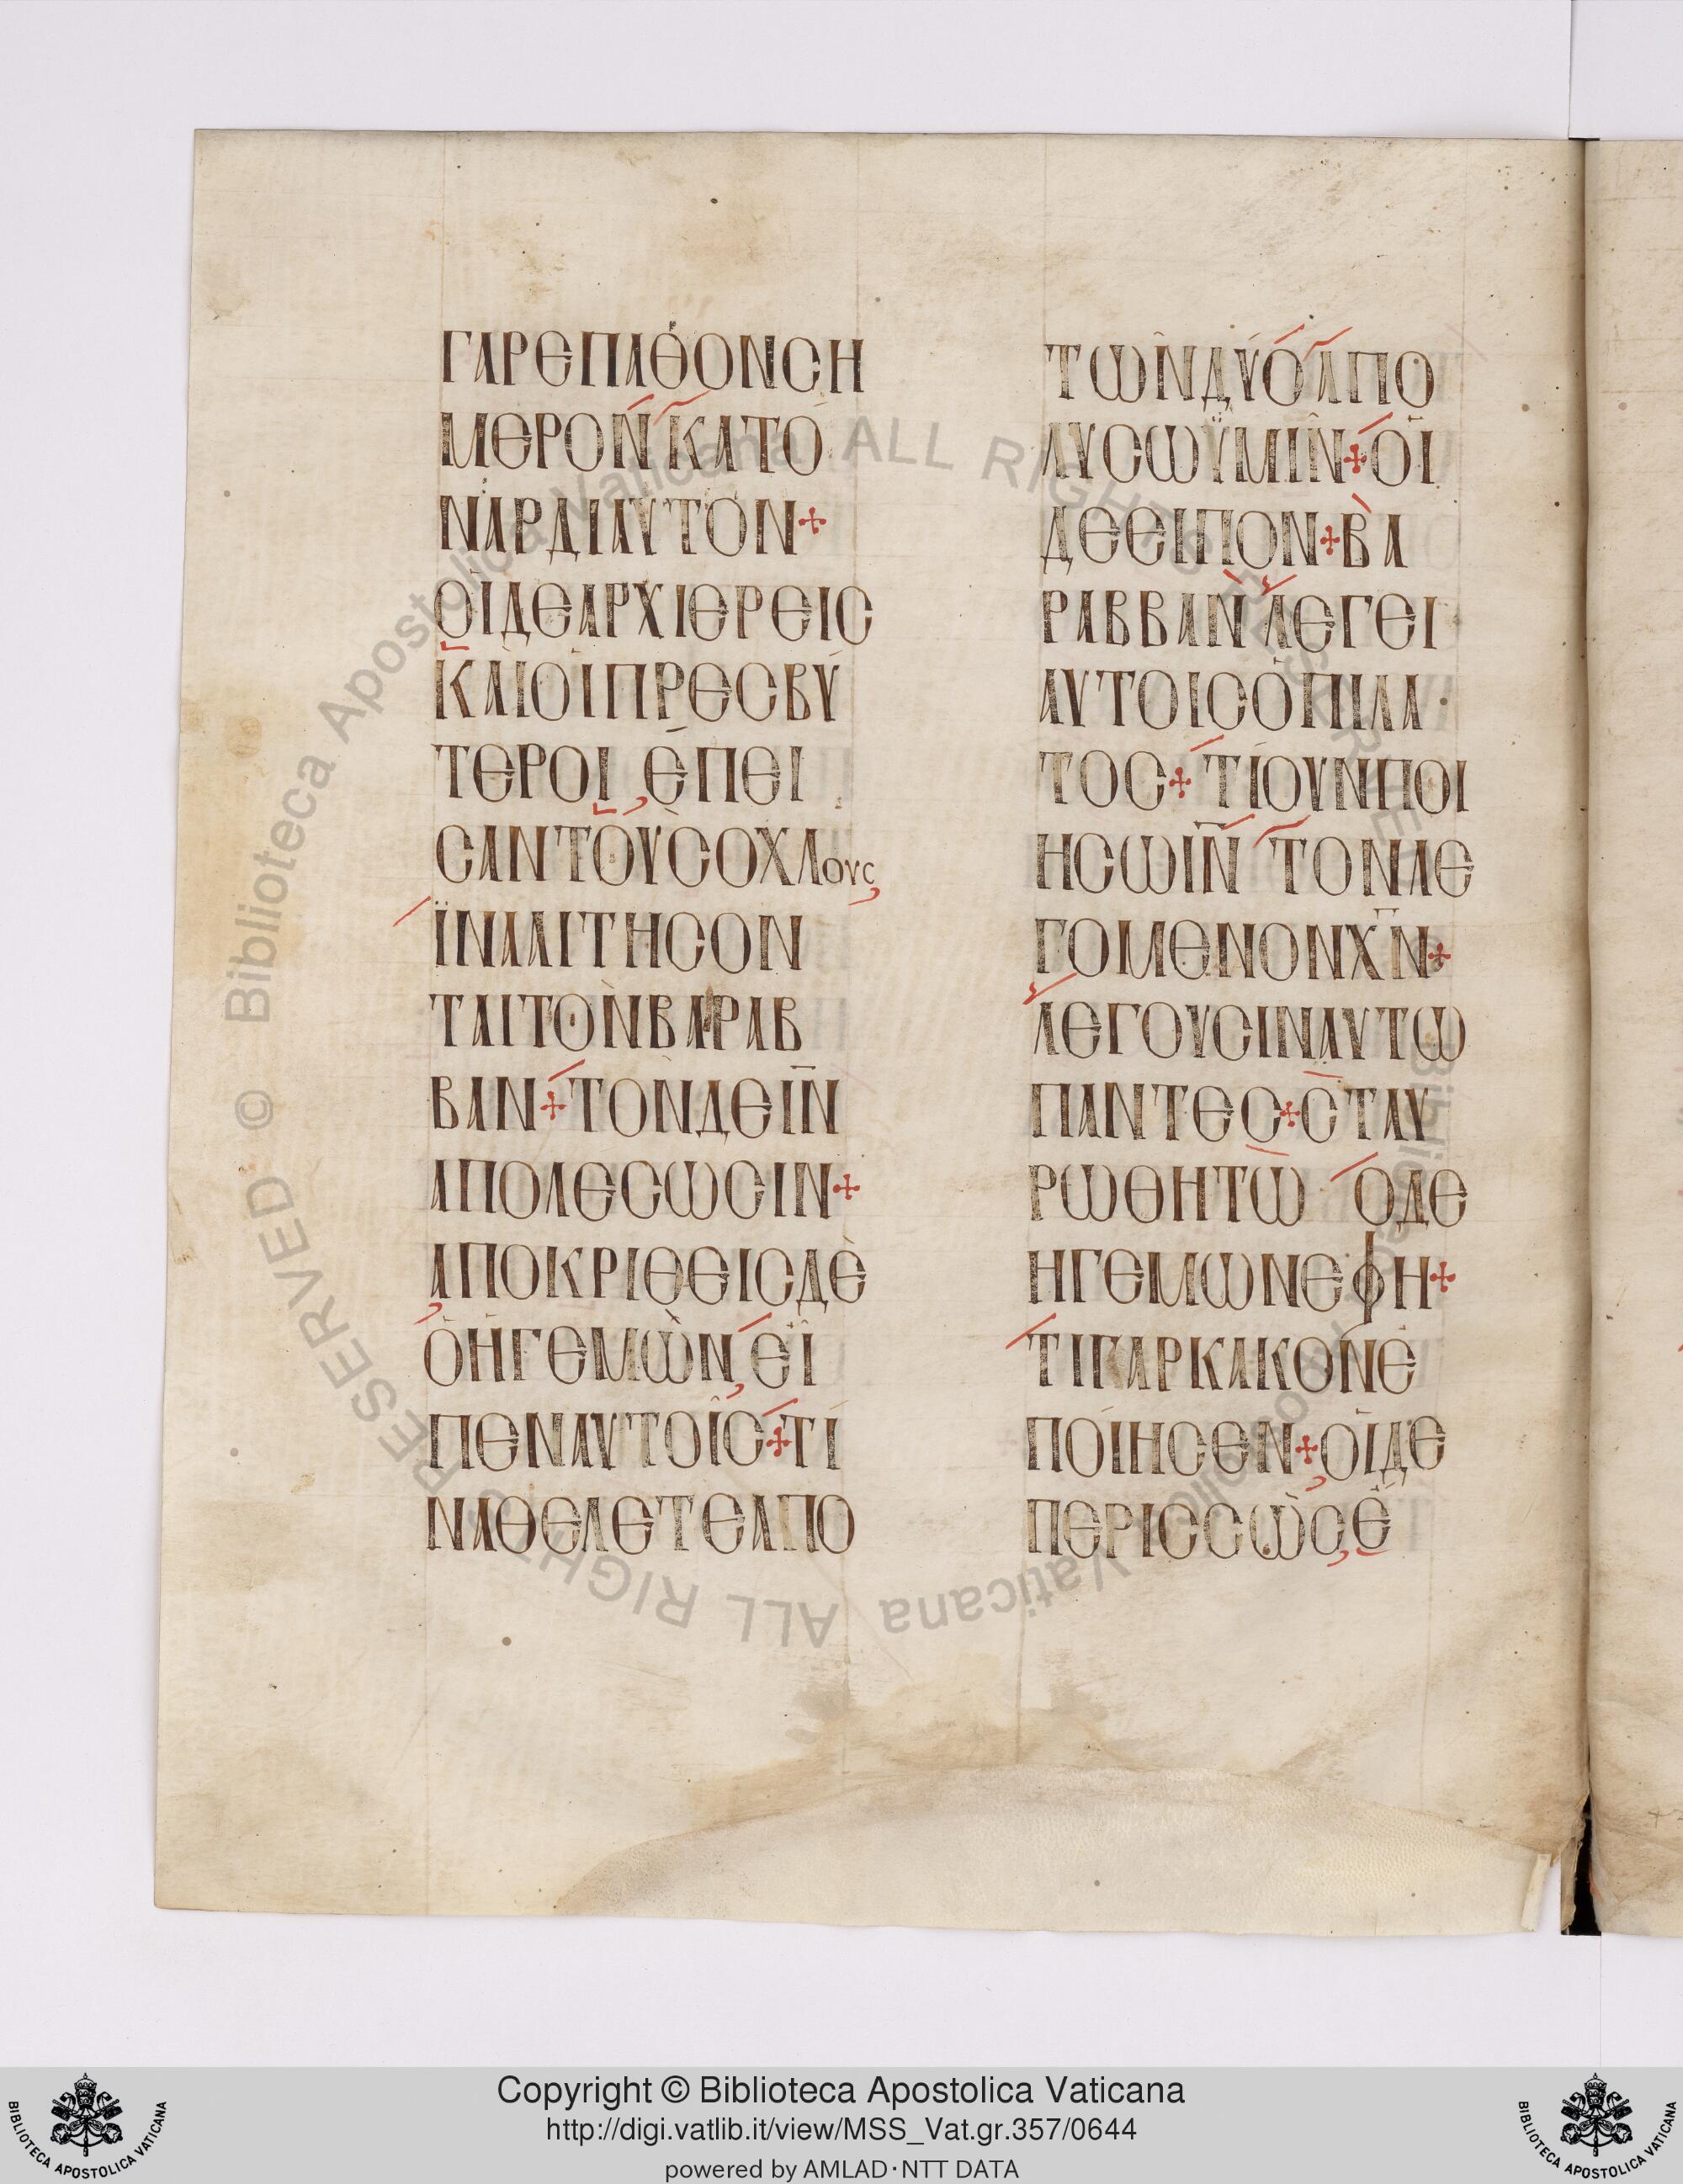 ΓΑΡΕΠΑΘΟΝϹΗ
ΜΕΡΟΝΚΑΤΟ
ΝΑΡΔΙΑΥΤΟΝ+
ΟΙΔΕΑΡΧΙΕΡΕΙϹ
ΚΑΙΟΙΠΡΕϹΒΥ
ΤΕΡΟΙΕΠΕΙ
ϹΑΝΤΟΥϹΟΧΛους
ΪΝΑΑΙΤΗϹΟΝ
ΤΑΙΤΟΝΒΑΡΑΒ
ΒΑΝ+ΤΟΝΔΕΙ̅Ν̅
ΑΠΟΛΕϹΩϹΙΝ+
ΑΠΟΚΡΙΘΕΙϹΔΕ
ΟΗΓΕΜΩΝΕΙ
ΠΕΝΑΥΤΟΙϹ+ΤΙ
ΝΑΘΕΛΕΤΕΑΠΟ
ΤΩΝΔΥΟΑΠΟ
ΛΥϹΩΫΜΙΝ+ΟΙ
ΔΕΕΙΠΟΝ+ΒΑ
ΡΑΒΒΑΝΛΕΓΕΙ
ΑΥΤΟΙϹΟΠΙΛΑ
ΤΟϹ+ΤΙΟΥΝΠΟΙ
ΗϹΩΙ̅Ν̅ΤΟΝΛΕ
ΓΟΜΕΝΟΝΧ̅Ν̅+
ΛΕΓΟΥϹΙΝΑΥΤΩ
ΠΑΝΤΕϹ+ϹΤΑΥ
ΡΩΘΗΤΩ ΟΔΕ
ΗΓΕΜΩΝΕΦΗ+
ΤΙΓΑΡΚΑΚΟΝΕ
ΠΟΙΗϹΕΝ+ΟΙΔΕ
ΠΕΡΙϹϹΩϹΕ
© Biblioteca Apostolica Vaticana ALL RIGHTS RESERVED
Copyright © Biblioteca Apostolica Vaticana
http://digi.vatlib.it/view/MSS_Vat.gr.357/0644
powered by AMLAD·NTT DATA
BIBLIOTECA APOSTOLICA VATICANA
BIBLIOTECA APOSTOLICA VATICANA